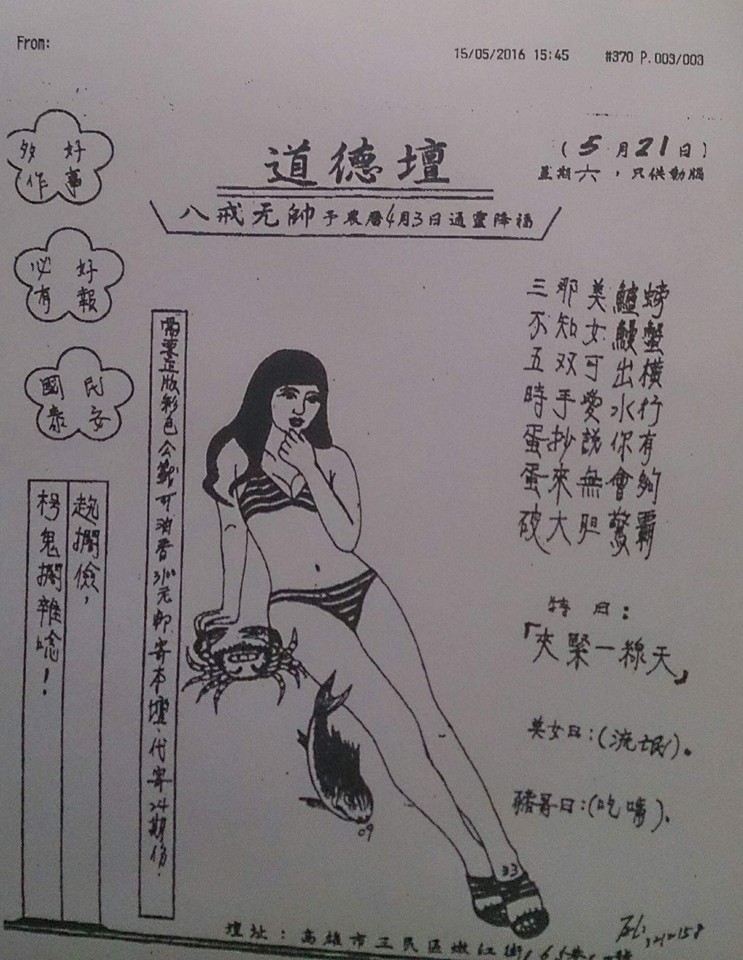 From:
15/05/2016 15:45 #370 P.003/003
好事
多作
好報
必有
民安
國泰
道德壇
(5月21日)
星期六，只供動腦
八戒元帥于農曆4月3日通靈降福
螃蟹橫行有夠霸
鱸鰻出水你會驚
美女可愛說無胆
那知双手抄來大
三不五時蛋蛋破
特曰：
「夾緊一線天」
美女曰：(流氓)。
豬哥曰：(吃嘴)。
需要正版彩色公籤可油香3100元郵寄本壇，代寄24期份．
趒擱儉，
拐鬼擱雜唸！
09
33
壇址：高雄市三民區嫩江街
Tel: